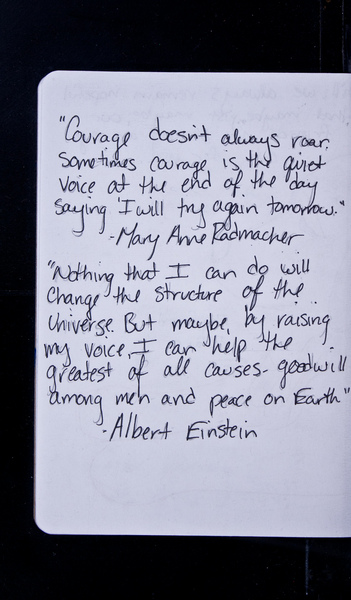 "Courage doesn't always roar.
Sometimes courage is the quiet
voice at the end of the day
saying 'I will try again tomorrow."
-Mary Anne Radmacher
"Nothing that I can do will
change the structure of the
Universe. But maybe, by raising
my voice, I can help the
greatest of all causes- goodwill
among men and peace on Earth"
-Albert Einstein